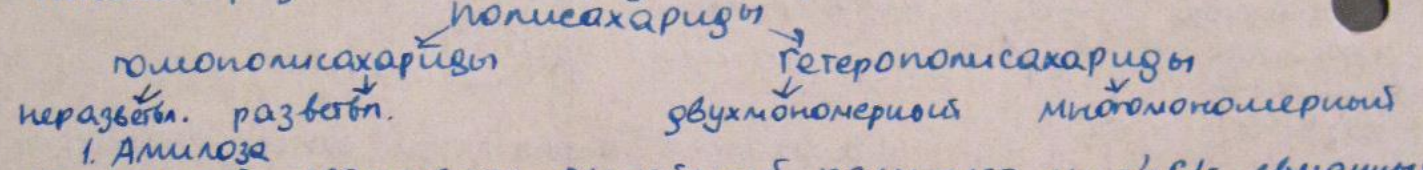 полисахариды
гомополисахариды гетерополисахариды
неразветвл. разветвл. двухмономерный многомономерный
1. Амилоза